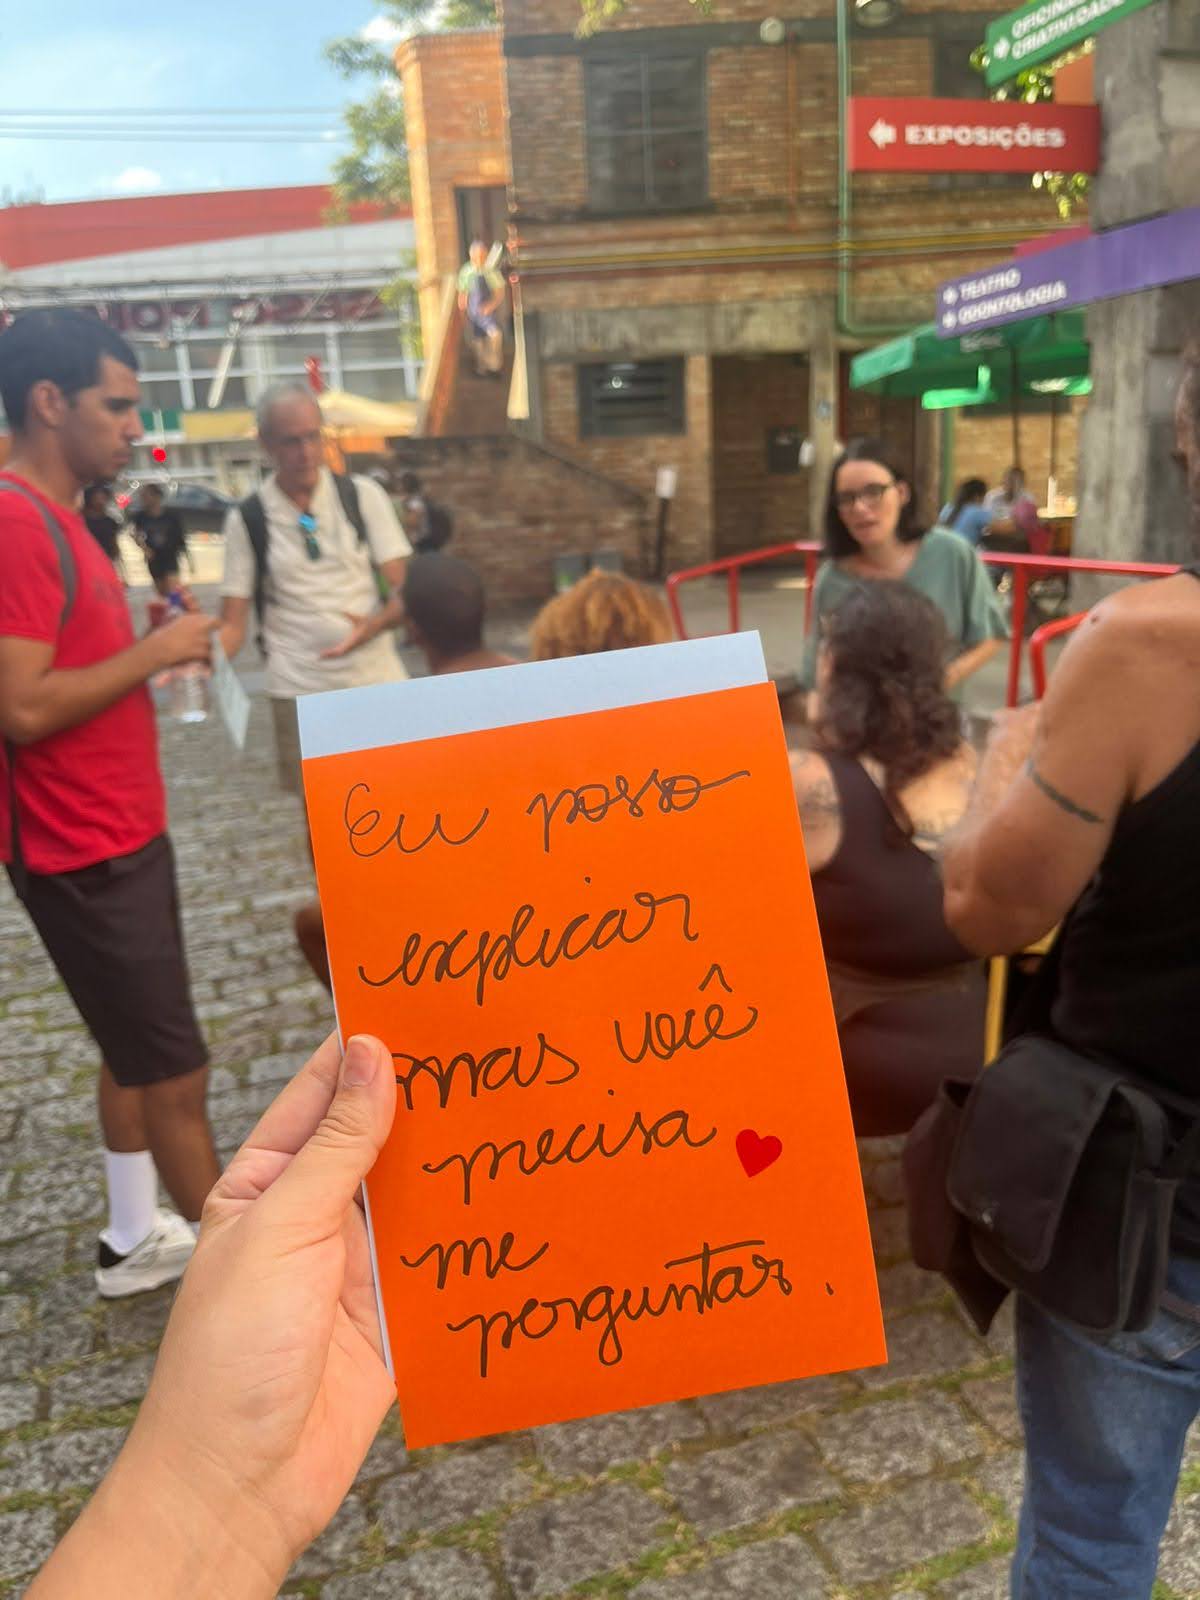 OFICINAS
CRIATIVIDADE
EXPOSIÇÕES
TEATRO
ODONTOLOGIA
Eu posso
explicar
mas você
precisa
me
perguntar.